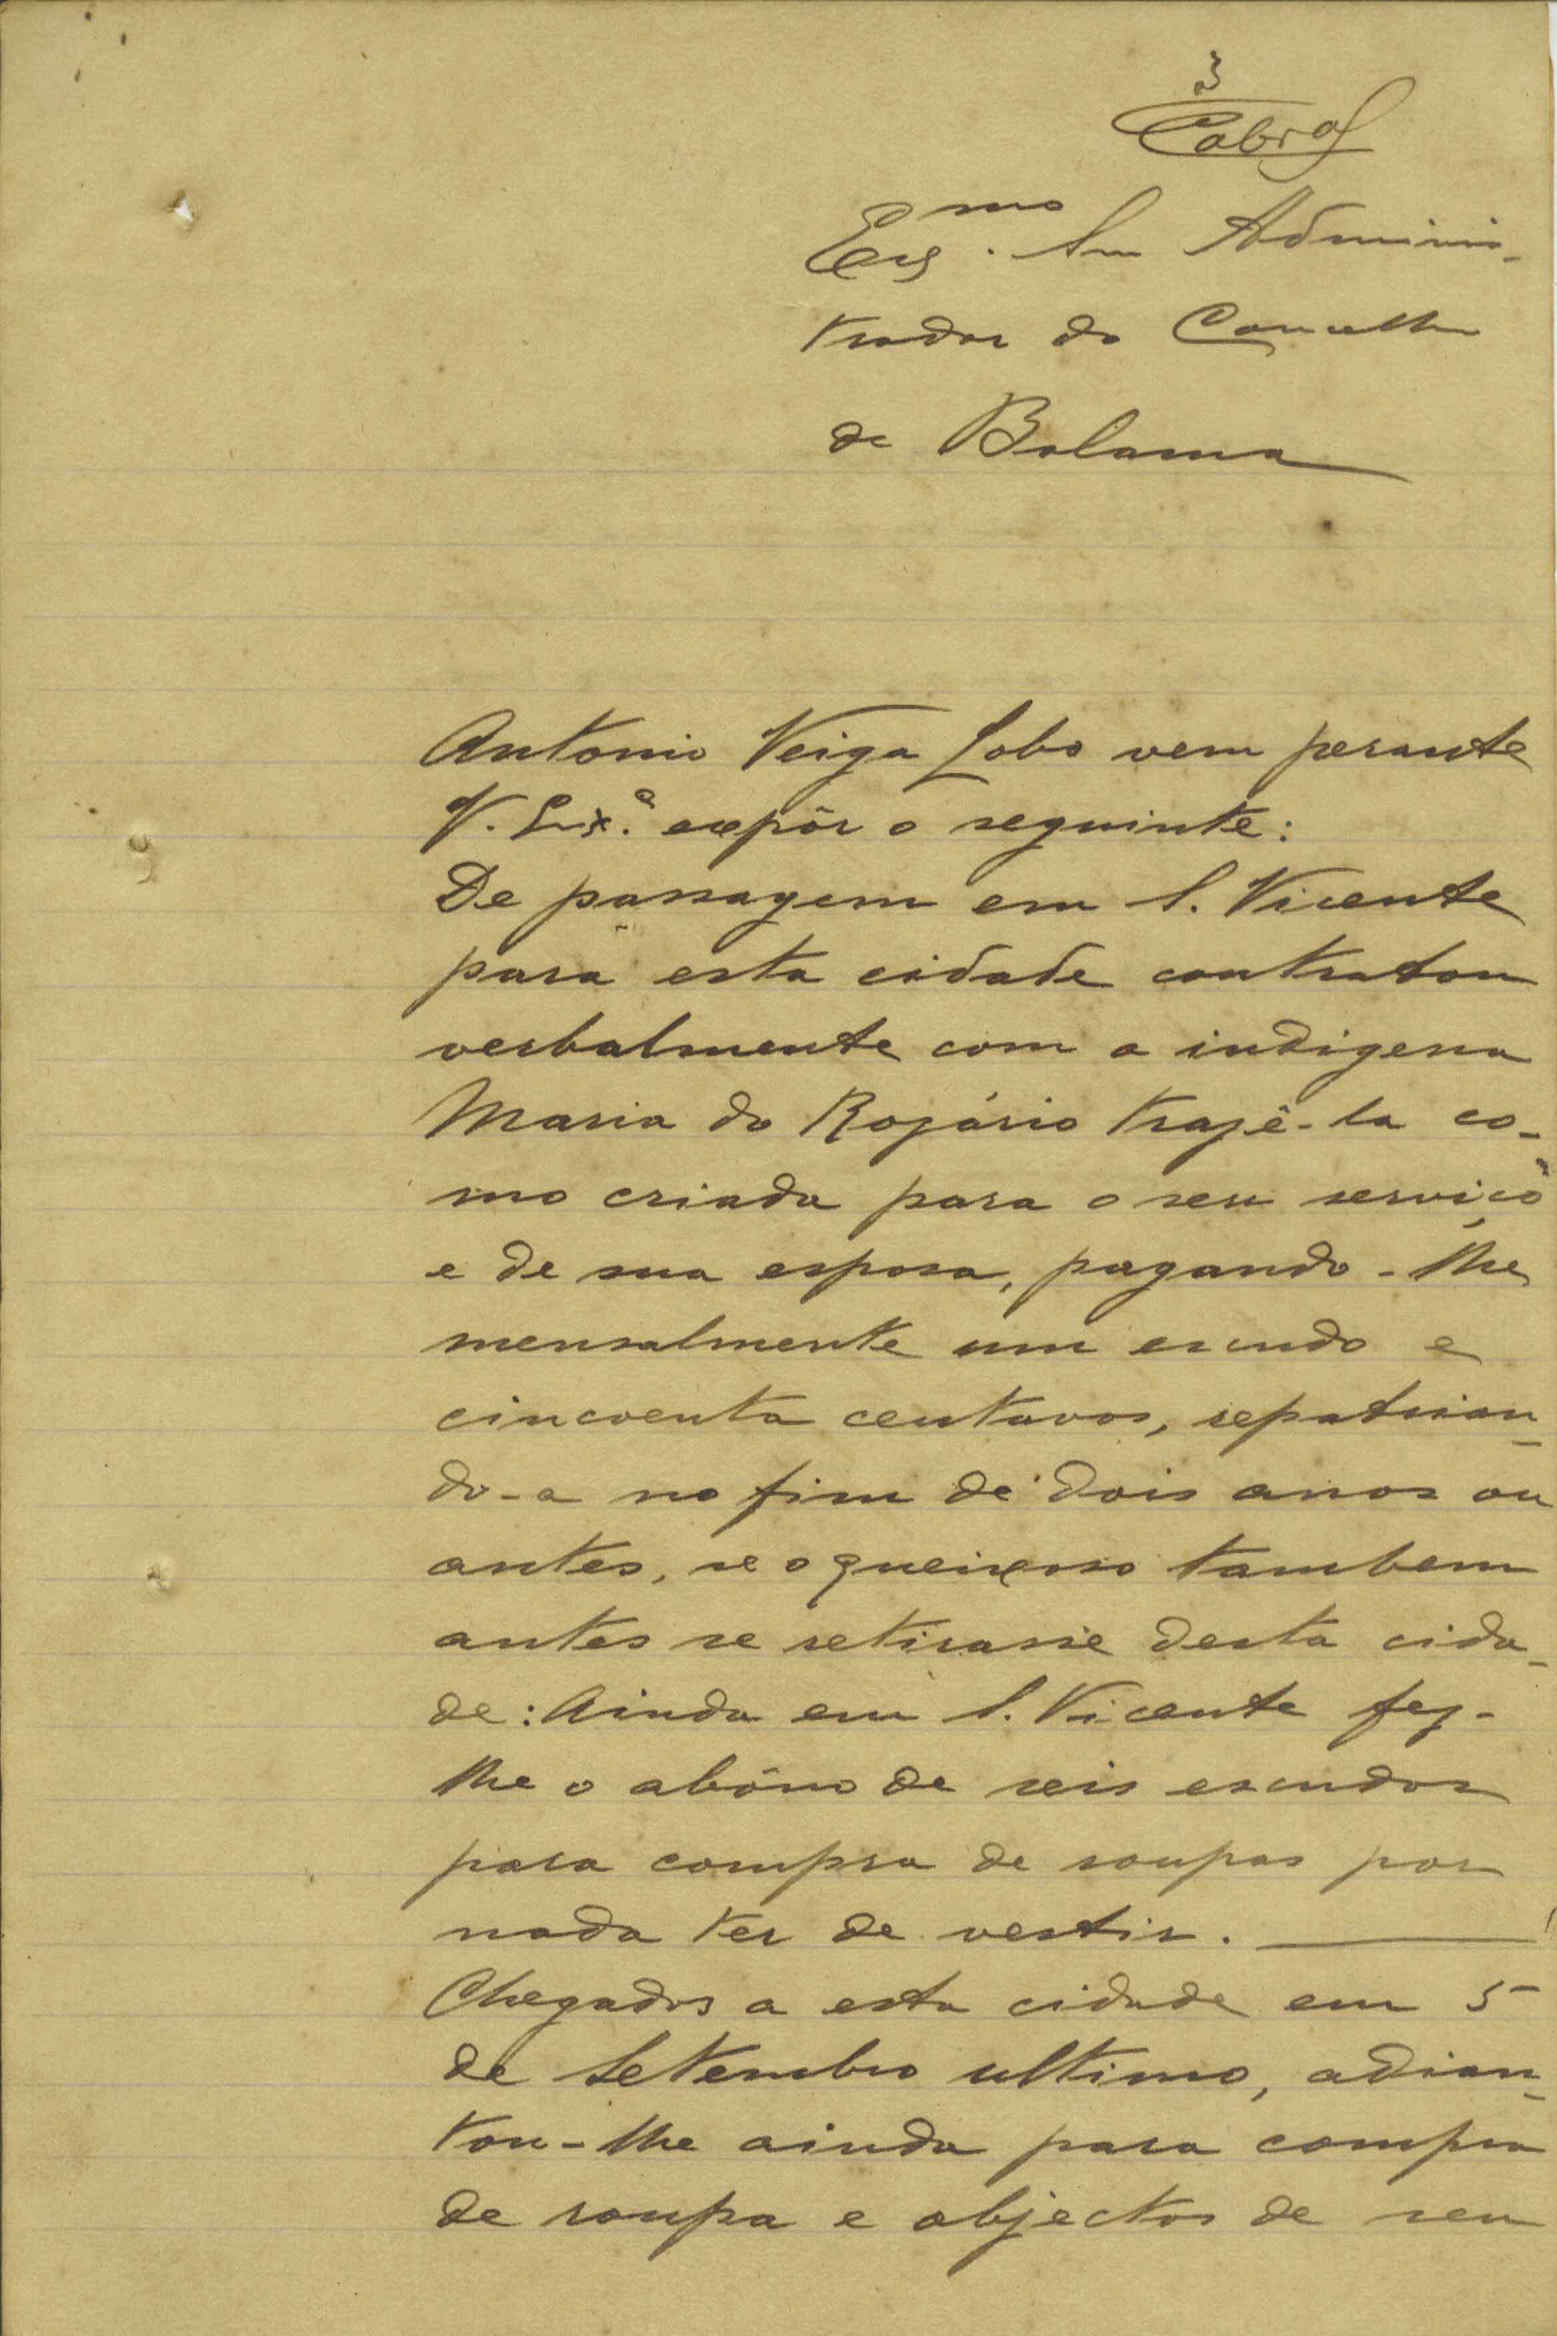 3
Cabral
Exmo. Snr Adminis-
trador do Concelho
de Bolama
Antonio Veiga Lobo vem perante
V. Exª. expôr o seguinte:
De passagem em S. Vicente
para esta cidade contratou
verbalmente com a indigena
Maria do Rozário trazê-la co-
mo criada para o seu serviço
e de sua esposa, pagando-lhe
mensalmente um escudo e
cincoenta centavos, repatrian-
do-a no fim de dois anos ou
antes, se o queixoso tambem
antes se retirasse desta cida-
de: Ainda em S. Vicente fez-
lhe o abôno de seis escudos
para compra de roupas por
nada ter de vestir.
Chegados a esta cidade em 5
de Setembro ultimo, adian-
tou-lhe ainda para compra
de roupa e objectos de seu